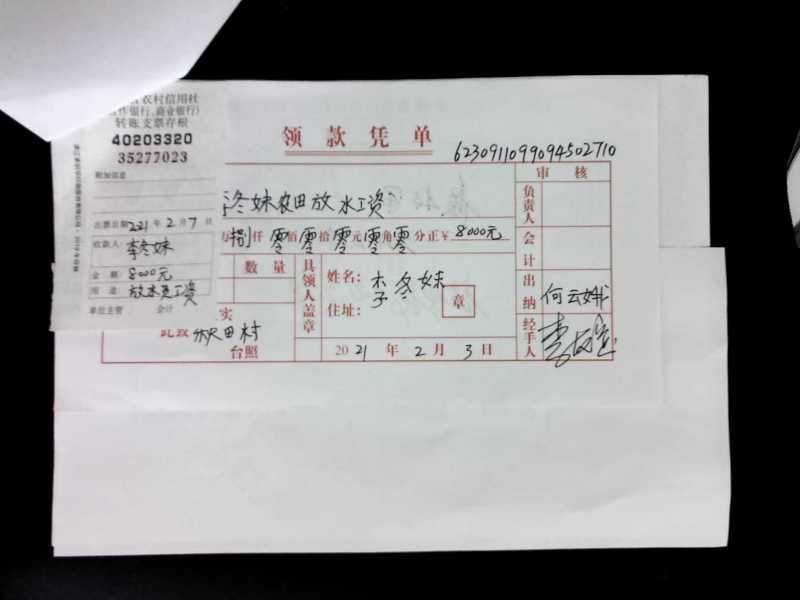 农村信用社
作银行、商业银行)
转账支票存根
40203320
35277023
附加信息
出票日期 221 年 2 月 7 日
收款人: 李冬妹
金额: 8000元
用途: 放水员工资
单位主管 会计
领款凭单
6230911099094502710
冬妹农田放水工资
万捌仟零佰零拾零元零角零分正¥8000元
数量
具领人盖章
姓名: 李冬妹
住址:
章
实
此致 秋田村
台照
2021 年 2 月 3 日
审核
负责人
会计
出纳 何云娥
经手人